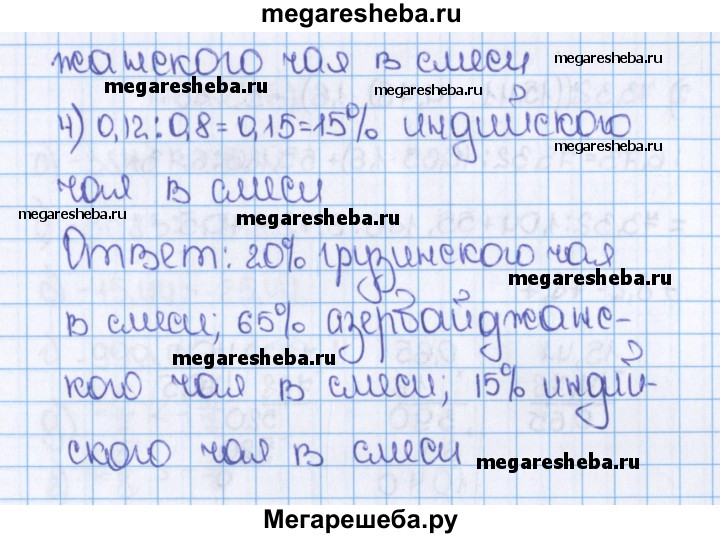 megaresheba.ru
жанского чая в смеси
megaresheba.ru
megaresheba.ru
megaresheba.ru
4) 0,12:0,8=0,15=15% индийского
megaresheba.ru
чая в смеси
megaresheba.ru
megaresheba.ru
Ответ: 20% грузинского чая
megaresheba.ru
в смеси; 65% азербайджанс-
megaresheba.ru
кого чая в смеси; 15% индий-
ского чая в смеси
megaresheba.ru
Мегарешеба.ру